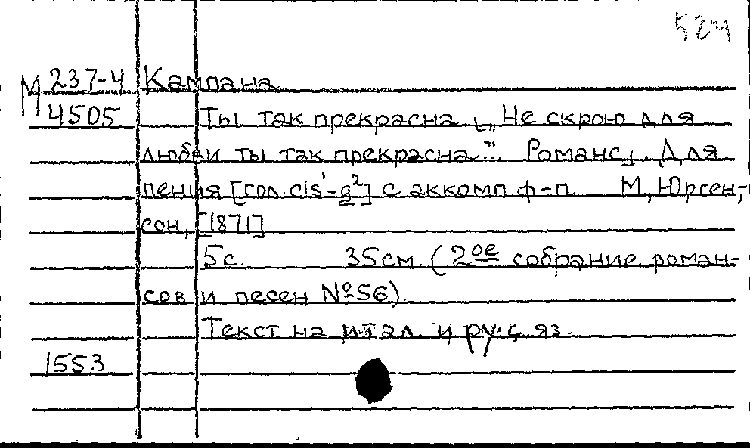 524
М 237-4 Кампана
4505 Ты так прекрасна „Не скрою для
любви ты так прекрасна". Романс. Для
пения [соп. cis¹-g²] с аккомп ф-п. М, Юрген-
сон, [1871]
5с. 35см. (2ое собрание роман-
сов и песен №56)
Текст на итал. и рус. яз.
1553